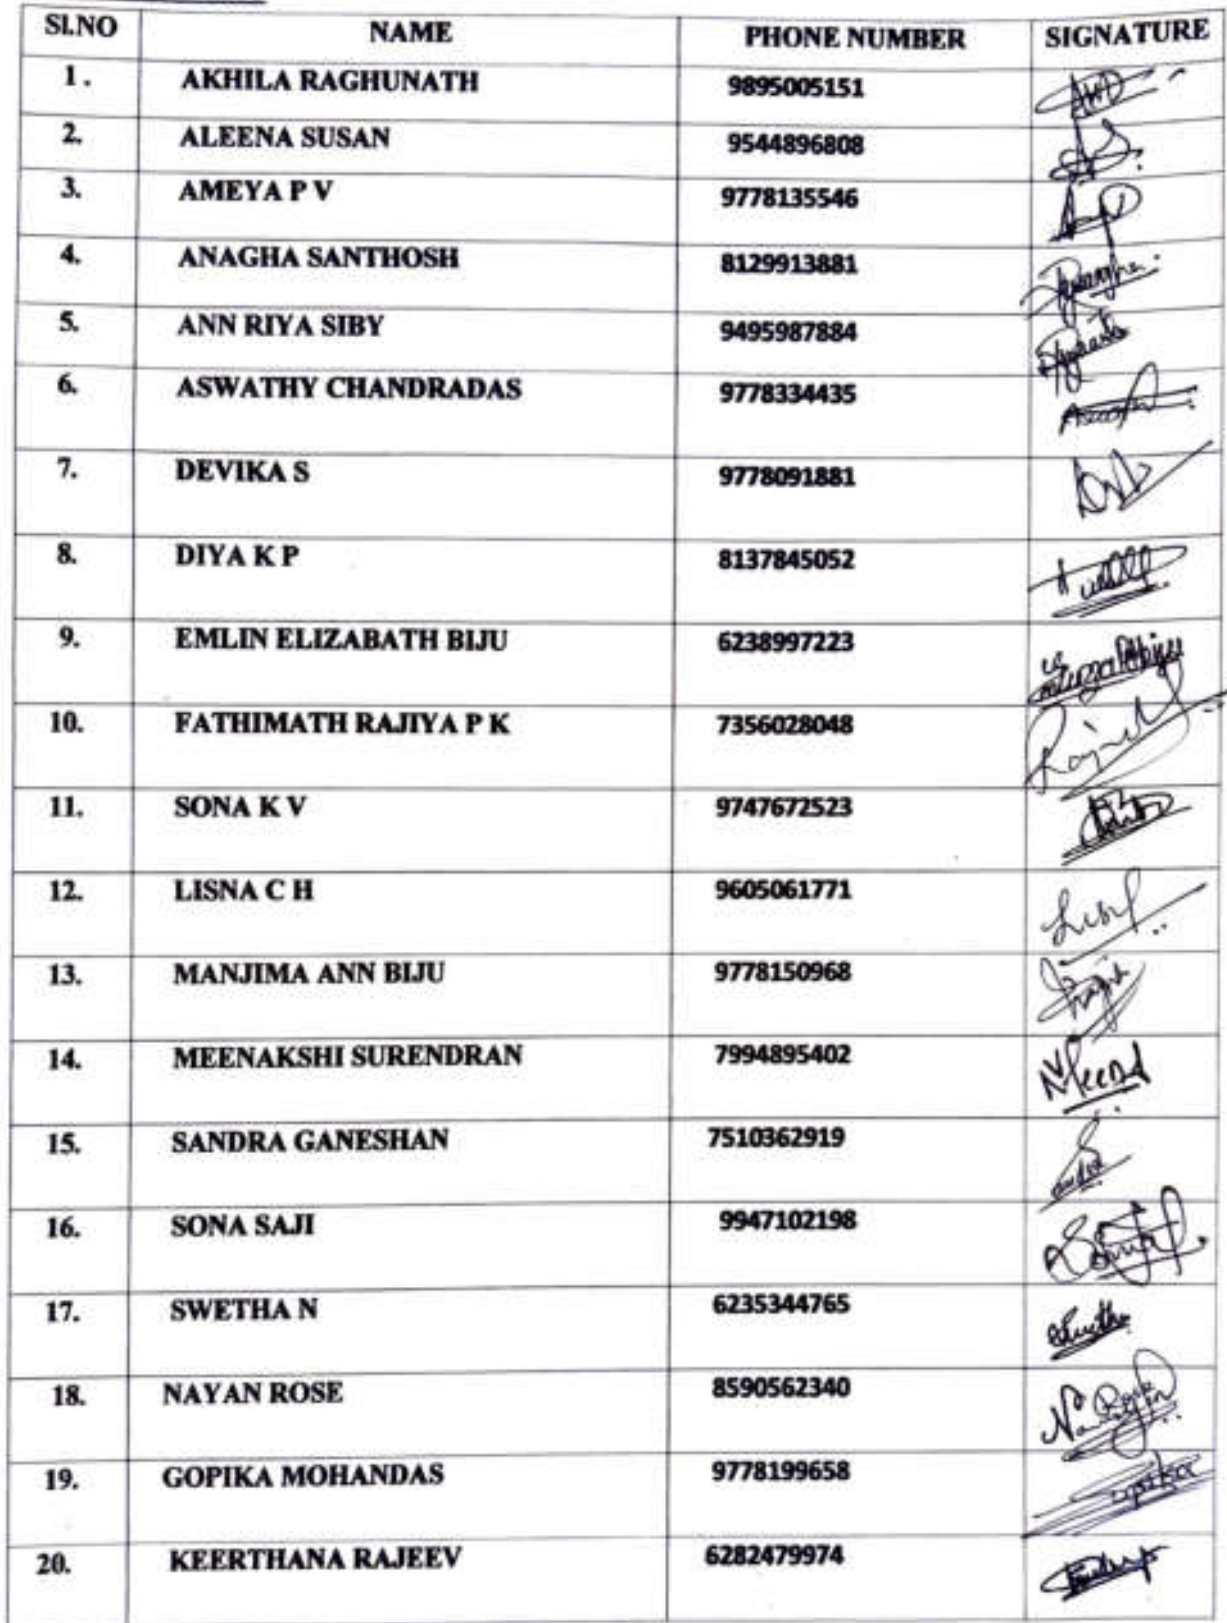 SI.NO NAME PHONE NUMBER SIGNATURE
1. AKHILA RAGHUNATH 9895005151
2. ALEENA SUSAN 9544896808
3. AMEYA P V 9778135546
4. ANAGHA SANTHOSH 8129913881
5. ANN RIYA SIBY 9495987884
6. ASWATHY CHANDRADAS 9778334435
7. DEVIKA S 9778091881
8. DIYA K P 8137845052
9. EMLIN ELIZABATH BIJU 6238997223
10. FATHIMATH RAJIYA P K 7356028048
11. SONA K V 9747672523
12. LISNA C H 9605061771
13. MANJIMA ANN BIJU 9778150968
14. MEENAKSHI SURENDRAN 7994895402
15. SANDRA GANESHAN 7510362919
16. SONA SAJI 9947102198
17. SWETHA N 6235344765
18. NAYAN ROSE 8590562340
19. GOPIKA MOHANDAS 9778199658
20. KEERTHANA RAJEEV 6282479974